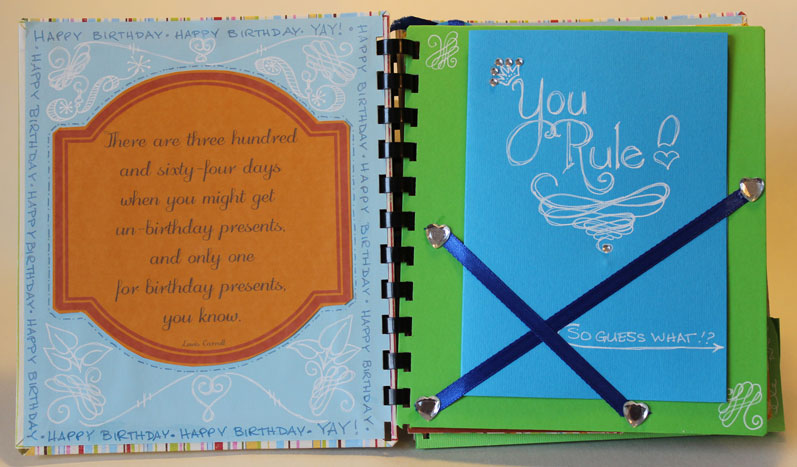 HAPPY BIRTHDAY · HAPPY BIRTHDAY · YAY! ·
HAPPY BIRTHDAY · HAPPY BIRTHDAY · HAPPY BIRTHDAY · HAPPY BIRTHDAY
There are three hundred
and sixty-four days
when you might get
un-birthday presents,
and only one
for birthday presents,
you know.
Lewis Carroll
HAPPY BIRTHDAY · HAPPY BIRTHDAY · HAPPY BIRTHDAY ·
· HAPPY BIRTHDAY · HAPPY BIRTHDAY · YAY! ·
You
Rule!
SO GUESS WHAT!?